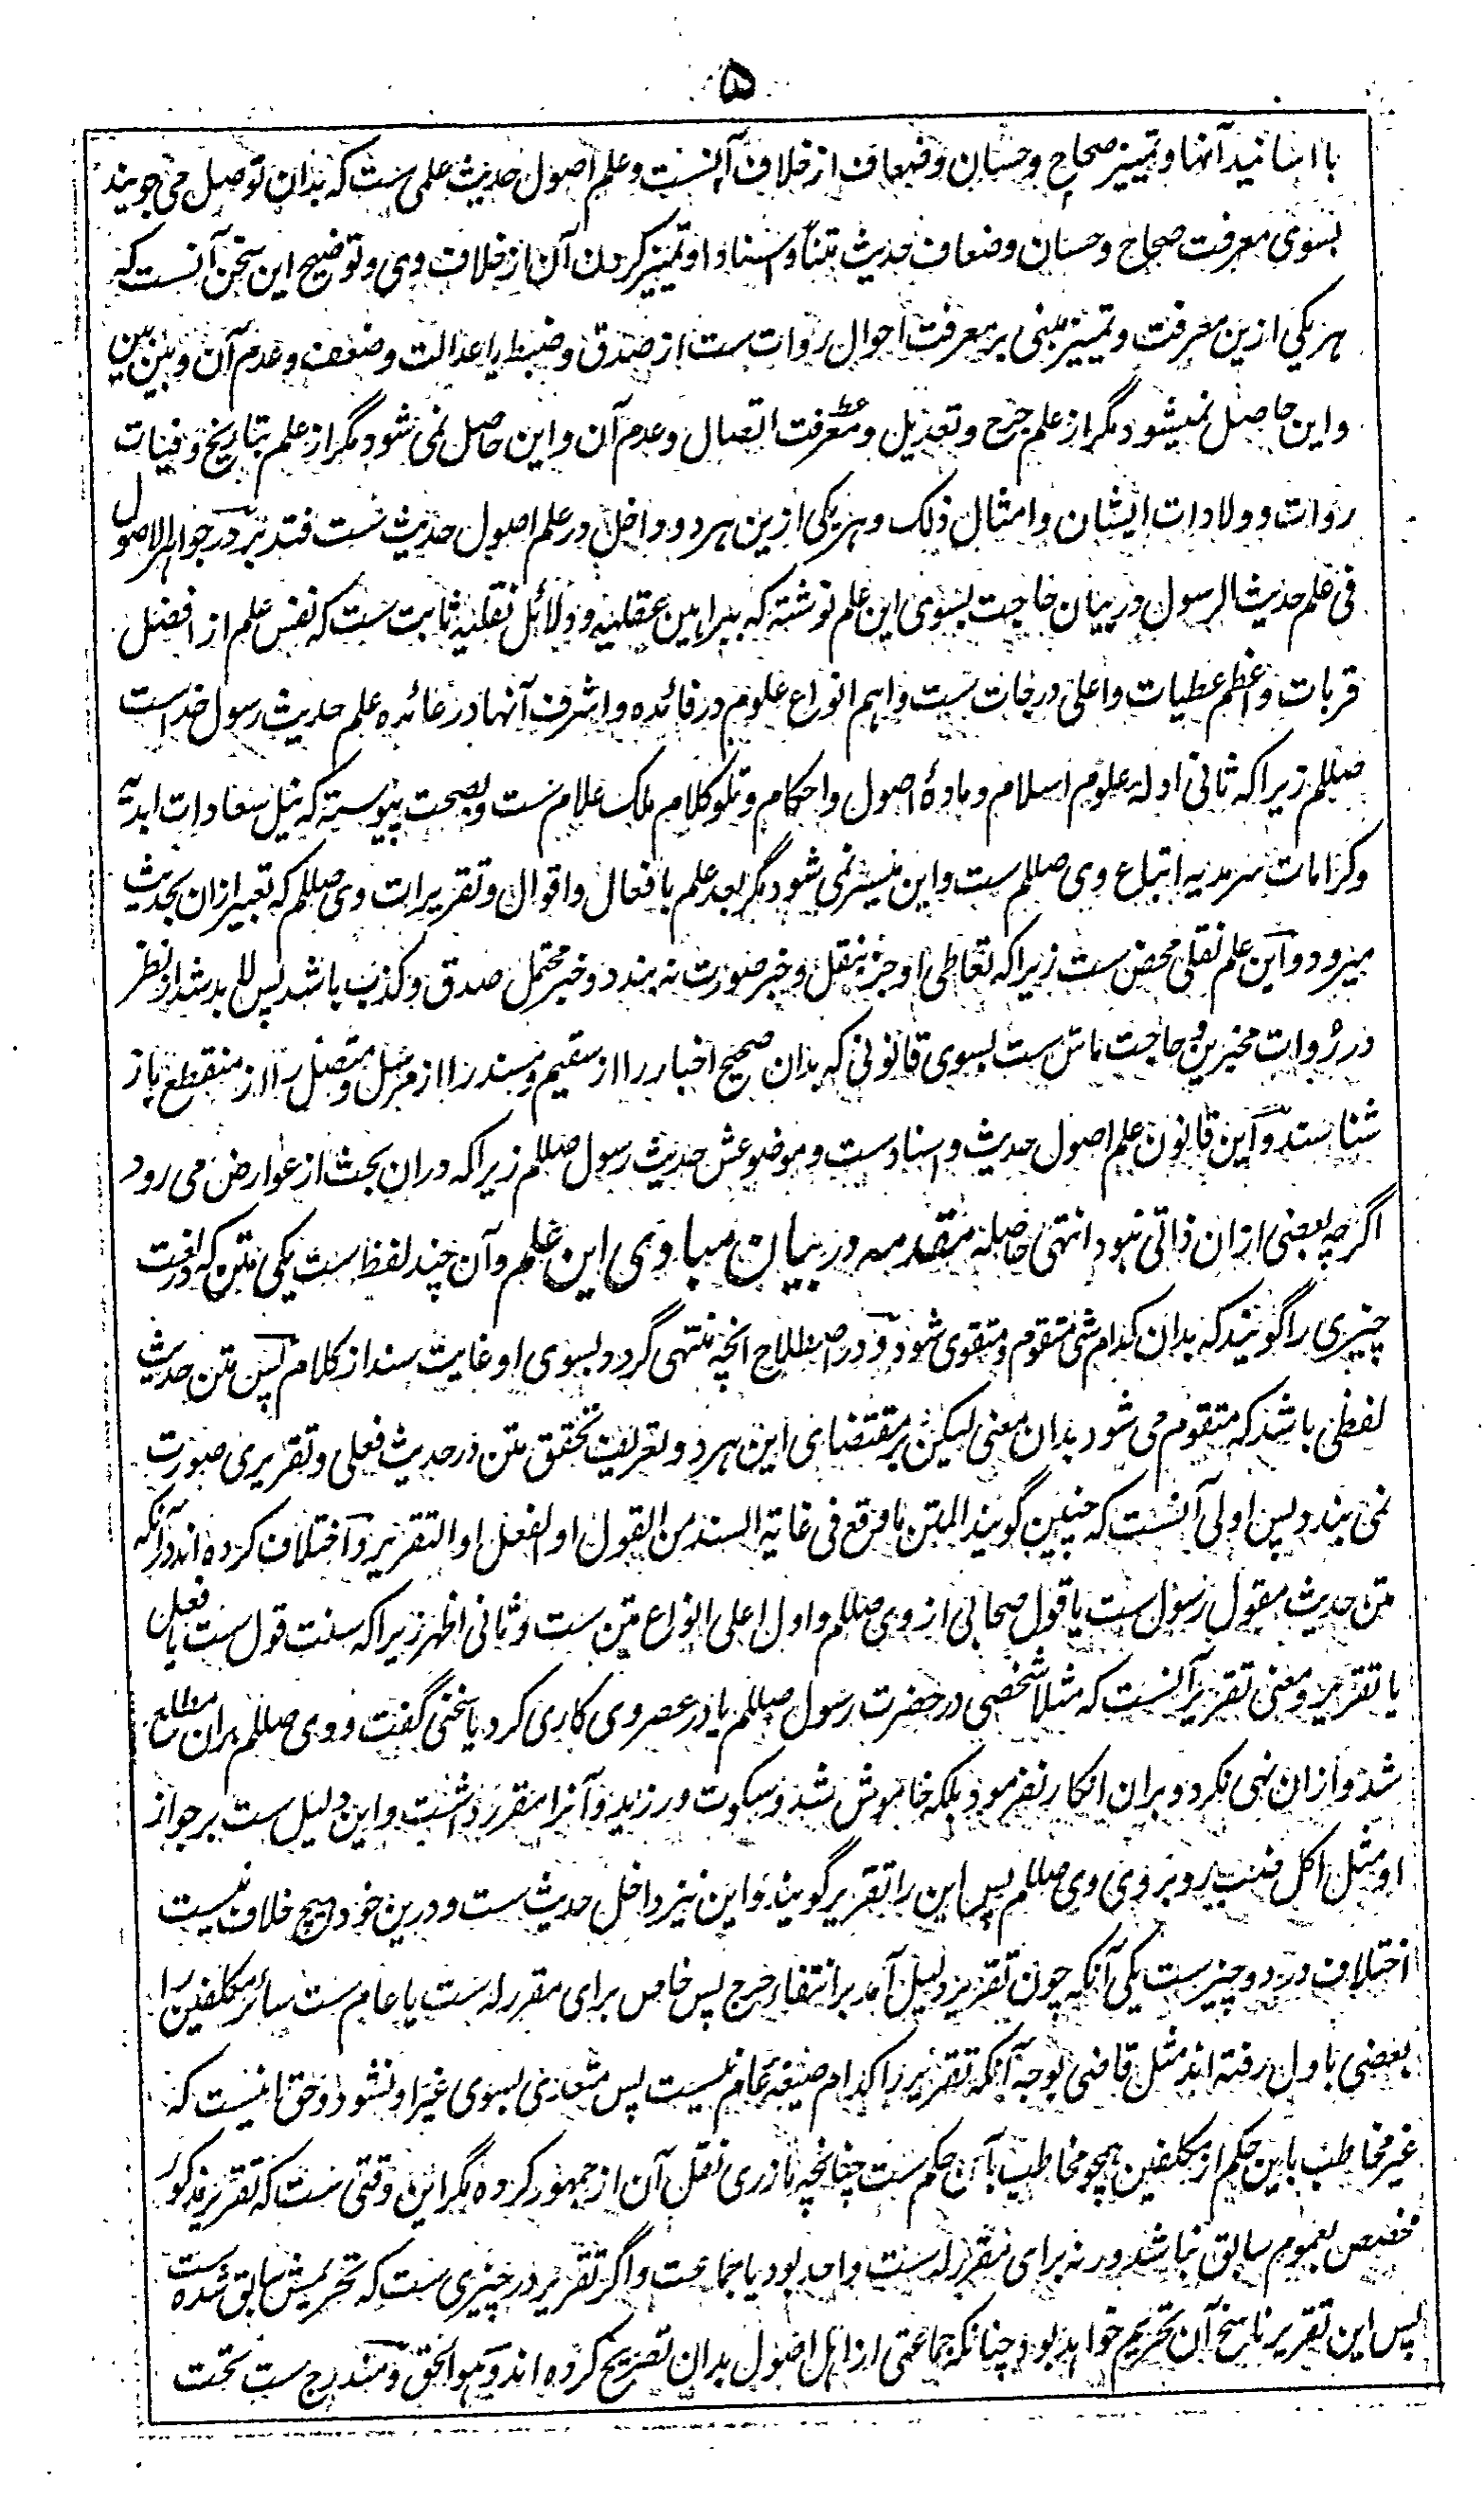 ۵
با اسانید آنها و تمییز صحاح و حسان و ضعاف از خلاف آنست و علم اصول حدیث علمی ست که بدان توصل می جویند
بسوی معرفت صحاح و حسان و ضعاف حدیث متناً و اسناداً و تمییز کردن آن از خلاف وی و توضیح این سخن آنست که
هر یکی ازین معرفت و تمییز مبنی بر معرفت احوال روات ست از صدق و ضبط یا عدالت و ضعف و عدم آن و بین بین
و این حاصل نمیشود مگر از علم جرح و تعدیل و معرفت اتصال و عدم آن و این حاصل نمی شود مگر از علم بتاریخ وفیات
روات و ولادات ایشان و امثال ذلک و هر یکی ازین هر دو داخل در علم اصول حدیث ست فتدبر در جواهر الاصول
فی علم حدیث الرسول در بیان حاجت بسوی این علم نوشته که ببراهین عقلیه و دلائل نقلیه ثابت ست که نفس علم از افضل
قربات و اعظم عطیات و اعلی درجات ست و اهم انواع علوم در فائده و اشرف آنها در عائده علم حدیث رسول خداست
صللم زیرا که ثانی ادلهٔ علوم اسلام و مادهٔ اصول و احکام و تلو کلام ملک علام ست و بصحت پیوسته که نیل سعادات ابدیه
و کرامات سرمدیه اتباع وی صللم ست و این میسر نمی شود مگر بعد علم بافعال و اقوال و تقریرات وی صللم که تعبیر ازان بحدیث
میرود و این علم نقلی محض ست زیرا که تعاطی او جز بنقل و خبر صورت نه بندد و خبر محتمل صدق و کذب باشد پس لابد شد از نظر
در روات مخبرین و حاجت ماس ست بسوی قانونی که بدان صحیح اخبار را از سقیم و مسند را از مرسل و متصل را از منقطع باز
شناسند و این قانون علم اصول حدیث و اسناد ست و موضوعش حدیث رسول صللم زیرا که دران بحث از عوارض می رود
اگرچه بعضی ازان ذاتی نبود انتهی حاصله مقدمه در بیان مبادی این علم و آن چند لفظ است یکی متن که در لغت
چیزی را گویند که بدان کدام شی متقوم و متقوی شود و در اصطلاح انچه منتهی گردد بسوی او غایت سند از کلام پس متن حدیث
لفظی باشد که متقوم می شود بدان معنی لیکن بر مقتضای این هر دو تعریف تحقق متن در حدیث فعلی و تقریری صورت
نمی بندد پس اولی آنست که چنین گویند المتن ما وقع فی غایة السند من القول او الفعل او التقریر و اختلاف کرده اند در آنکه
متن حدیث مقول رسول ست یا قول صحابی از وی صللم و اول اعلی انواع متن ست و ثانی اظهر زیرا که سنت قول ست یا فعل
یا تقریر و معنی تقریر آنست که مثلا شخصی در حضرت رسول صللم یا در عصر وی کاری کرد یا سخنی گفت و وی صللم بران مطلع
شد و ازان نهی نکرد و بران انکار نفرمود بلکه خاموش شد و سکوت ورزید و آنرا مقرر داشت و این دلیل ست بر جواز
او مثل اکل ضب روبروی وی صللم پس این را تقریر گویند و این نیز داخل حدیث ست و درین خود هیچ خلاف نیست
اختلاف در دو چیز ست یکی آنکه چون تقریر دلیل آمد بر انتفاء حرج پس خاص برای مقرر له ست یا عام ست سائر مکلفین را
بعضی باول رفته اند مثل قاضی بوجه آنکه تقریر را کدام صیغهٔ عام نیست پس متعدی بسوی غیر او نشود و حق اینست که
غیر مخاطب باین حکم از مکلفین همچو مخاطب بآن حکم ست چنانچه مازری نقل آن از جمهور کرده مگر این وقتی ست که تقریر مذکور
مخصص بعموم سابق نباشد ورنه برای مقرر له ست واحد بود یا جماعت و اگر تقریر در چیزی ست که تحریمش سابق شده ست
پس این تقریر ناسخ آن تحریم خواهد بود چنانکه جماعتی از اهل اصول بدان تصریح کرده اند و هو الحق و مندرج ست تحت